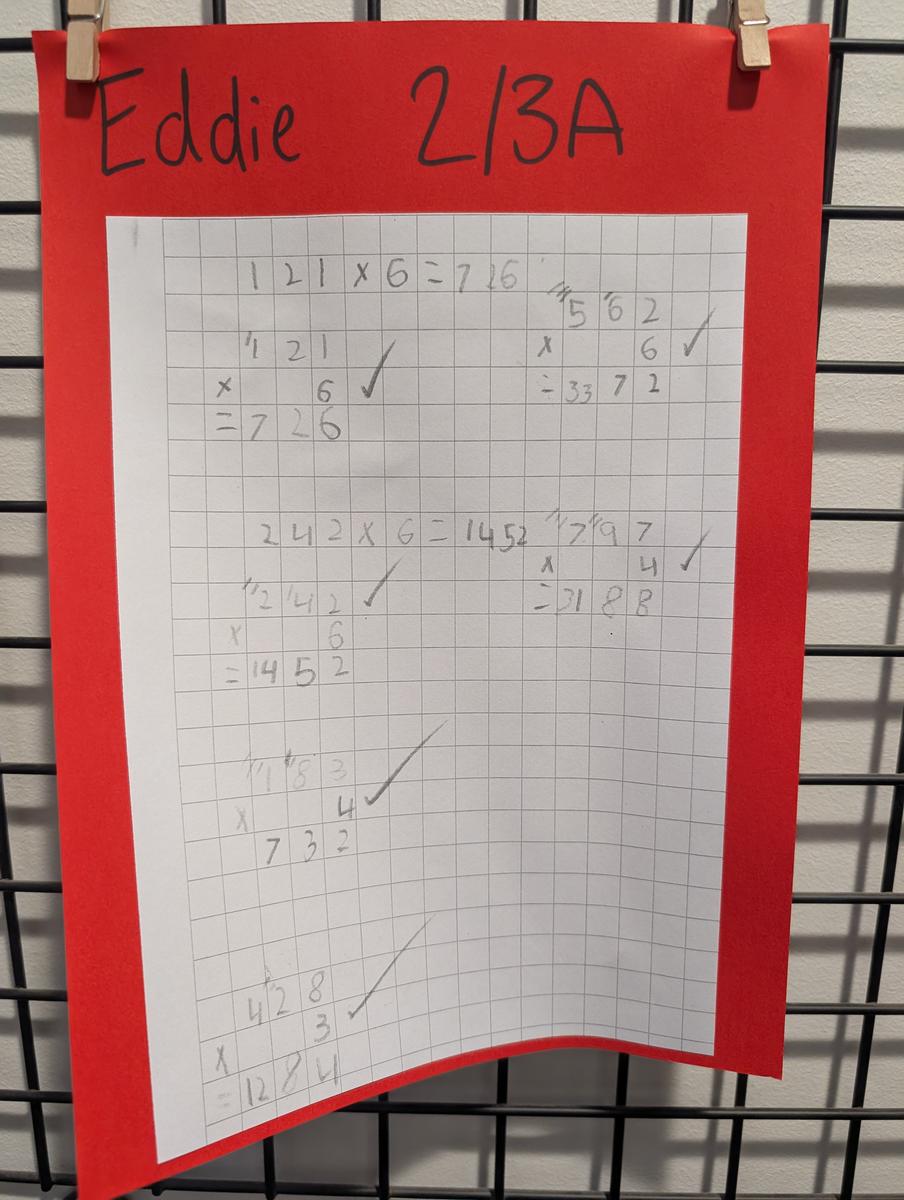 Eddie 2/3A
121 x 6 = 726
121
x 6
= 726
562
x 6
= 3372
242 x 6 = 1452
242
x 6
= 1452
797
x 4
= 3188
183
x 4
732
428
x 3
= 1284